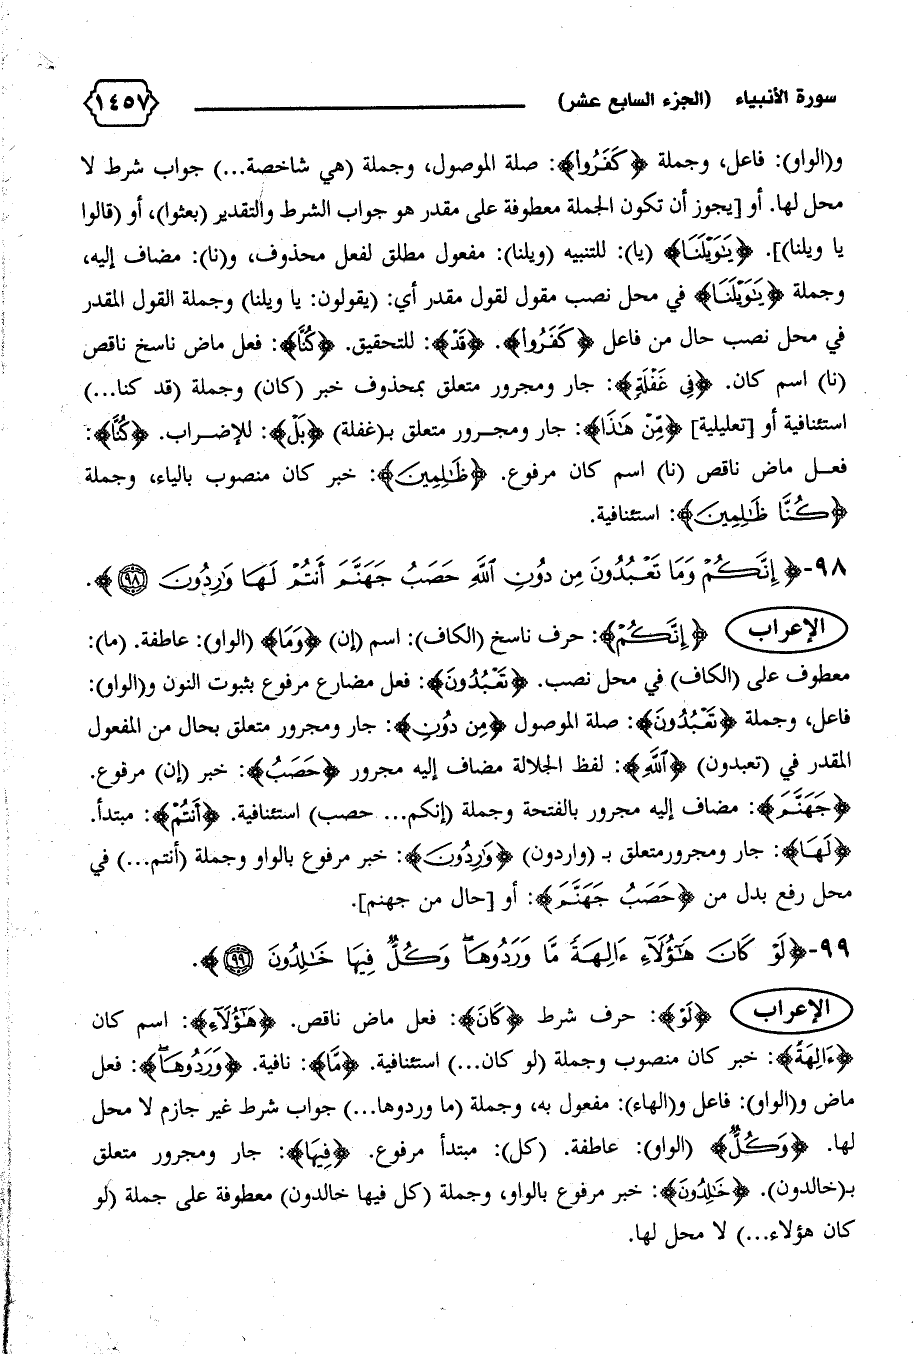 سورة الأنبياء (الجزء السابع عشر) ١٤٥٧
و(الواو): فاعل، وجملة ﴿كَفَرُوا﴾: صلة الموصول، وجملة (هي شاخصة...) جواب شرط لا
محل لها. أو [يجوز أن تكون الجملة معطوفة على مقدر هو جواب الشرط والتقدير (بعثوا)، أو (قالوا
يا ويلنا)]. ﴿يَٰوَيۡلَنَا﴾ (يا): للتنبيه (ويلنا): مفعول مطلق لفعل محذوف، و(نا): مضاف إليه،
وجملة ﴿يَٰوَيۡلَنَا﴾ في محل نصب مقول لقول مقدر أي: (يقولون: يا ويلنا) وجملة القول المقدر
في محل نصب حال من فاعل ﴿كَفَرُوا﴾. ﴿قَدۡ﴾: للتحقيق. ﴿كُنَّا﴾: فعل ماض ناسخ ناقص
(نا) اسم كان. ﴿فِي غَفۡلَةٍ﴾: جار ومجرور متعلق بمحذوف خبر (كان) وجملة (قد كنا...)
استئنافية أو [تعليلية] ﴿مِّنۡ هَٰذَا﴾: جار ومجرور متعلق بـ(غفلة) ﴿بَلۡ﴾: للإضراب. ﴿كُنَّا﴾:
فعل ماض ناقص (نا) اسم كان مرفوع. ﴿ظَٰلِمِينَ﴾: خبر كان منصوب بالياء، وجملة
﴿كُنَّا ظَٰلِمِينَ﴾: استئنافية.
٩٨- ﴿إِنَّكُمۡ وَمَا تَعۡبُدُونَ مِن دُونِ ٱللَّهِ حَصَبُ جَهَنَّمَ أَنتُمۡ لَهَا وَٰرِدُونَ ٩٨﴾.
الإعراب ﴿إِنَّكُمۡ﴾: حرف ناسخ (الكاف): اسم (إن) ﴿وَمَا﴾ (الواو): عاطفة. (ما):
معطوف على (الكاف) في محل نصب. ﴿تَعۡبُدُونَ﴾: فعل مضارع مرفوع بثبوت النون و(الواو):
فاعل، وجملة ﴿تَعۡبُدُونَ﴾: صلة الموصول ﴿مِن دُونِ﴾: جار ومجرور متعلق بحال من المفعول
المقدر في (تعبدون) ﴿ٱللَّهِ﴾: لفظ الجلالة مضاف إليه مجرور ﴿حَصَبُ﴾: خبر (إن) مرفوع.
﴿جَهَنَّمَ﴾: مضاف إليه مجرور بالفتحة وجملة (إنكم... حصب) استئنافية. ﴿أَنتُمۡ﴾: مبتدأ.
﴿لَهَا﴾: جار ومجرورمتعلق بـ (واردون) ﴿وَٰرِدُونَ﴾: خبر مرفوع بالواو وجملة (أنتم...) في
محل رفع بدل من ﴿حَصَبُ جَهَنَّمَ﴾: أو [حال من جهنم].
٩٩- ﴿لَوۡ كَانَ هَٰٓؤُلَآءِ ءَالِهَةٗ مَّا وَرَدُوهَاۖ وَكُلّٞ فِيهَا خَٰلِدُونَ ٩٩﴾.
الإعراب ﴿لَوۡ﴾: حرف شرط ﴿كَانَ﴾: فعل ماض ناقص. ﴿هَٰٓؤُلَآءِ﴾: اسم كان
﴿ءَالِهَةٗ﴾: خبر كان منصوب وجملة (لو كان...) استئنافية. ﴿مَّا﴾: نافية. ﴿وَرَدُوهَاۖ﴾: فعل
ماض و(الواو): فاعل و(الهاء): مفعول به، وجملة (ما وردوها...) جواب شرط غير جازم لا محل
لها. ﴿وَكُلّٞ﴾ (الواو): عاطفة. (كل): مبتدأ مرفوع. ﴿فِيهَا﴾: جار ومجرور متعلق
بـ(خالدون). ﴿خَٰلِدُونَ﴾: خبر مرفوع بالواو، وجملة (كل فيها خالدون) معطوفة على جملة (لو
كان هؤلاء...) لا محل لها.